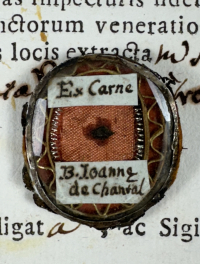 as impecturis fidel
nctorum veneratio
s locis extracta
Ex Carne
B. Ioannę
de Chantal
ligat
ac Sigi